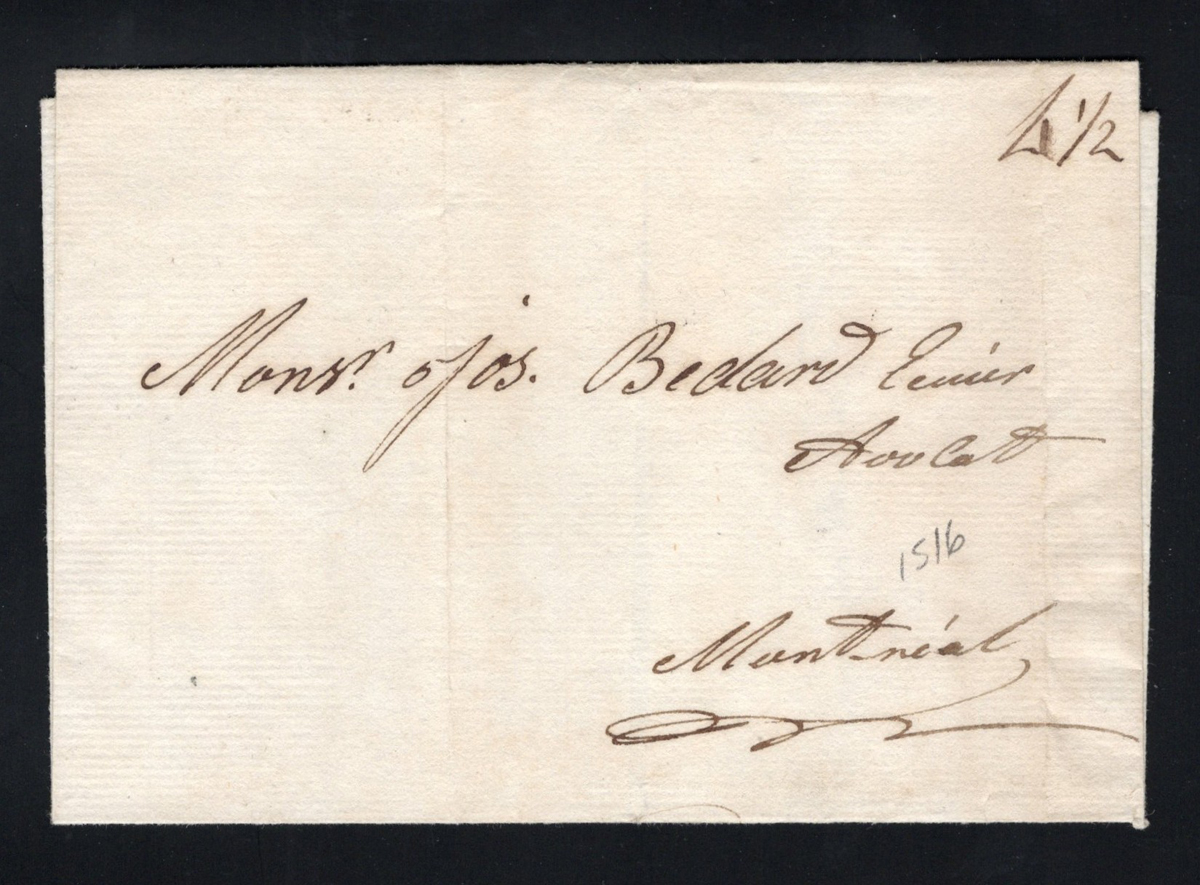 4 1/2
Monsr. Jos. Bedard Ecuier
Avocat
1516
Montréal